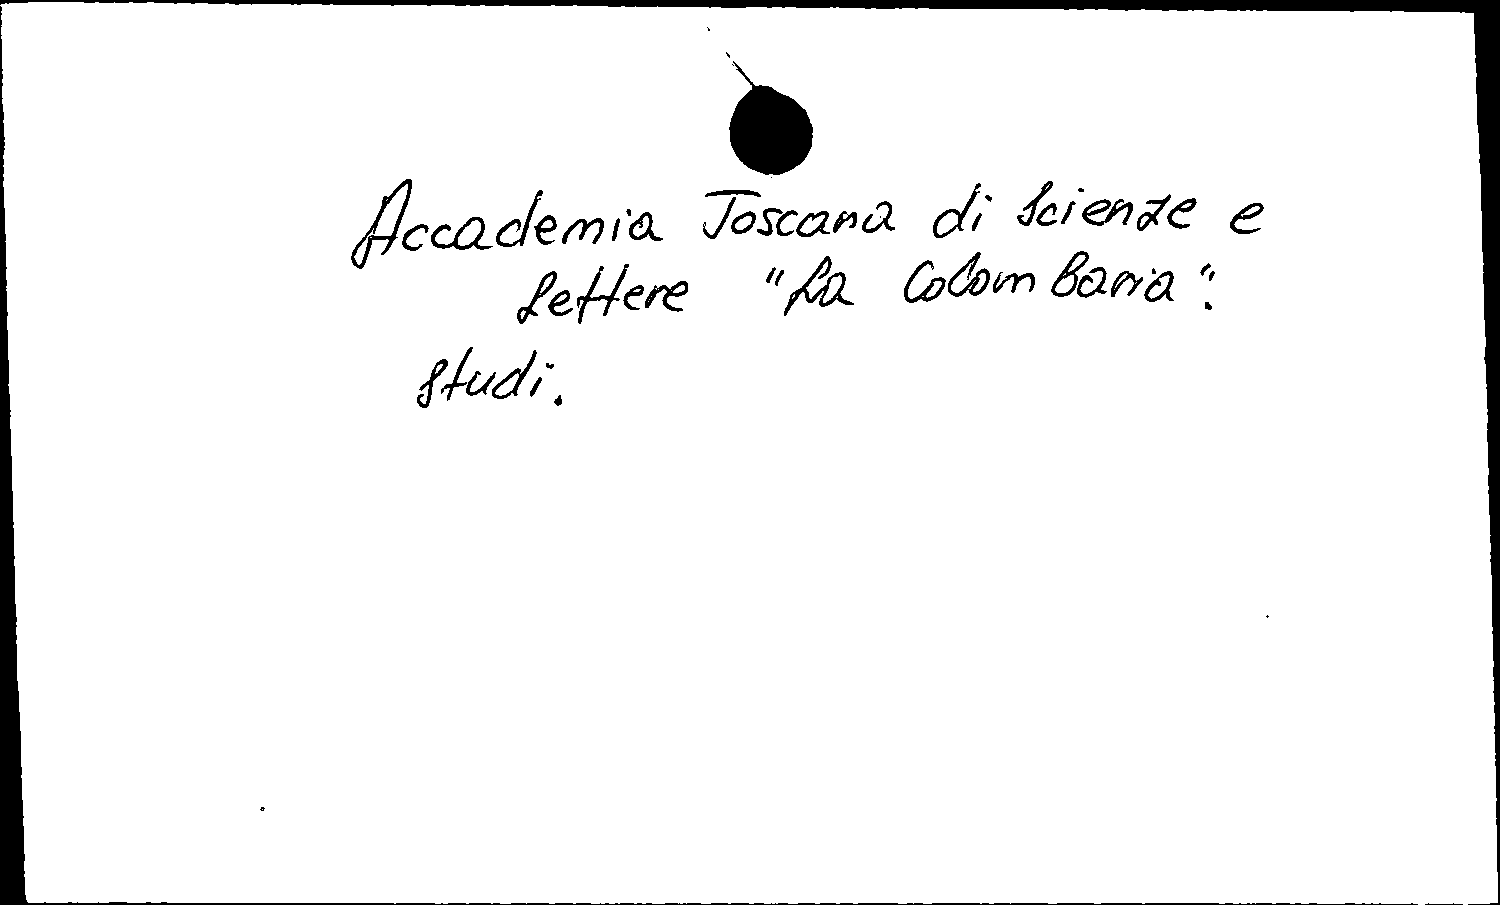 Accademia Toscana di Scienze e
Lettere "La Colombaria".
Studi.